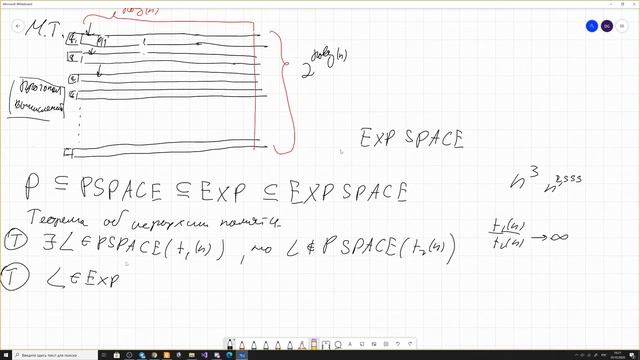 Microsoft Whiteboard
poly(n)
М.Т.
2^poly(n)
Протокол
вычислений
EXP SPACE
P ⊆ PSPACE ⊆ EXP ⊆ EXP SPACE
n^3
Теорема об иерархии памяти.
(T) ∃L ∈ PSPACE(t₁(n)), но L ∉ PSPACE(t₂(n))
t₁(n)/t₂(n) → ∞
(T) L ∈ EXP
Введите здесь текст для поиска